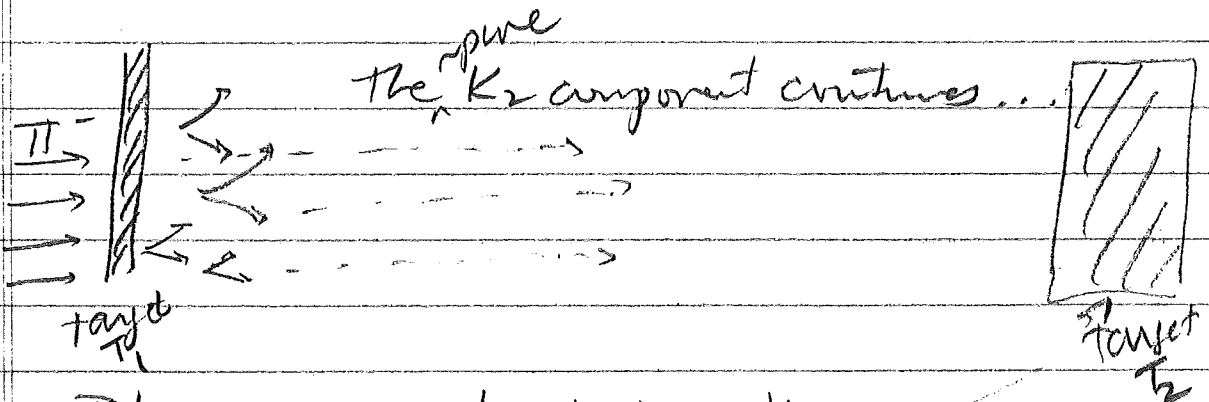 pure
The ^ K₂ component continues...
π⁻
target
T₁
target
T₂